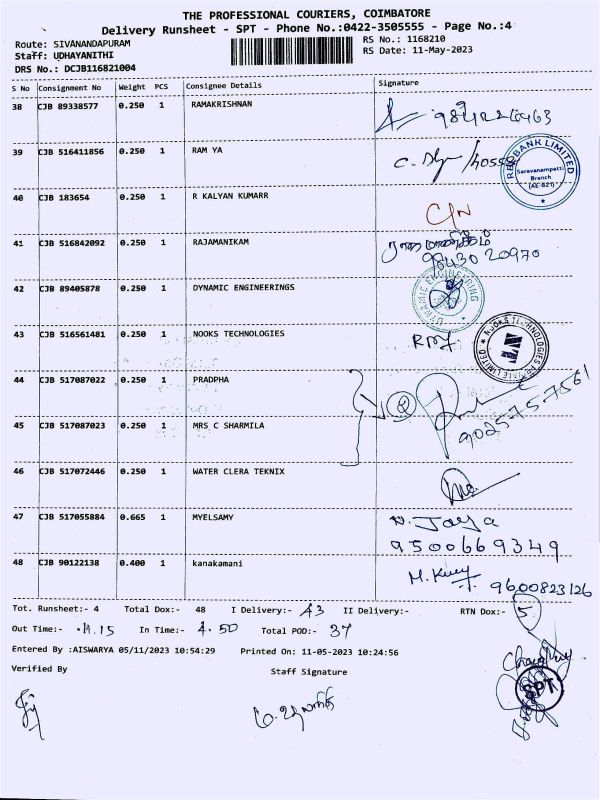 THE PROFESSIONAL COURIERS, COIMBATORE
Delivery Runsheet - SPT - Phone No.:0422-3505555 - Page No.:4
Route: SIVANANDAPURAM
Staff: UDHAYANITHI
DRS No.: DCJB116821004
RS No.: 1168210
RS Date: 11-May-2023
S No Consignment No Weight PCS Consignee Details Signature
38 CJB 89338577 0.250 1 RAMAKRISHNAN
39 CJB 516411856 0.250 1 RAM YA
RBL BANK LIMITED
Saravanampatti
Branch
(AE-821)
40 CJB 183654 0.250 1 R KALYAN KUMARR C/N
41 CJB 516842092 0.250 1 RAJAMANIKAM ராஜமாணிக்கம்
98430 20970
42 CJB 89405878 0.250 1 DYNAMIC ENGINEERINGS
DYNAMIC ENGINEERING
43 CJB 516561481 0.250 1 NOOKS TECHNOLOGIES
NOOKS TECHNOLOGIES PRIVATE LIMITED
44 CJB 517087022 0.250 1 PRADPHA
2
9025757561
45 CJB 517087023 0.250 1 MRS C SHARMILA
46 CJB 517072446 0.250 1 WATER CLERA TEKNIX
47 CJB 517055884 0.665 1 MYELSAMY N. Jaya
9500669349
48 CJB 90122138 0.400 1 kanakamani 9600823126
Tot. Runsheet:- 4 Total Dox:- 48 I Delivery:- 43 II Delivery:- RTN Dox:- 5
Out Time:- 11.15 In Time:- 4.50 Total POD:- 37
Entered By :AISWARYA 05/11/2023 10:54:29 Printed On: 11-05-2023 10:24:56
Verified By Staff Signature
SPT